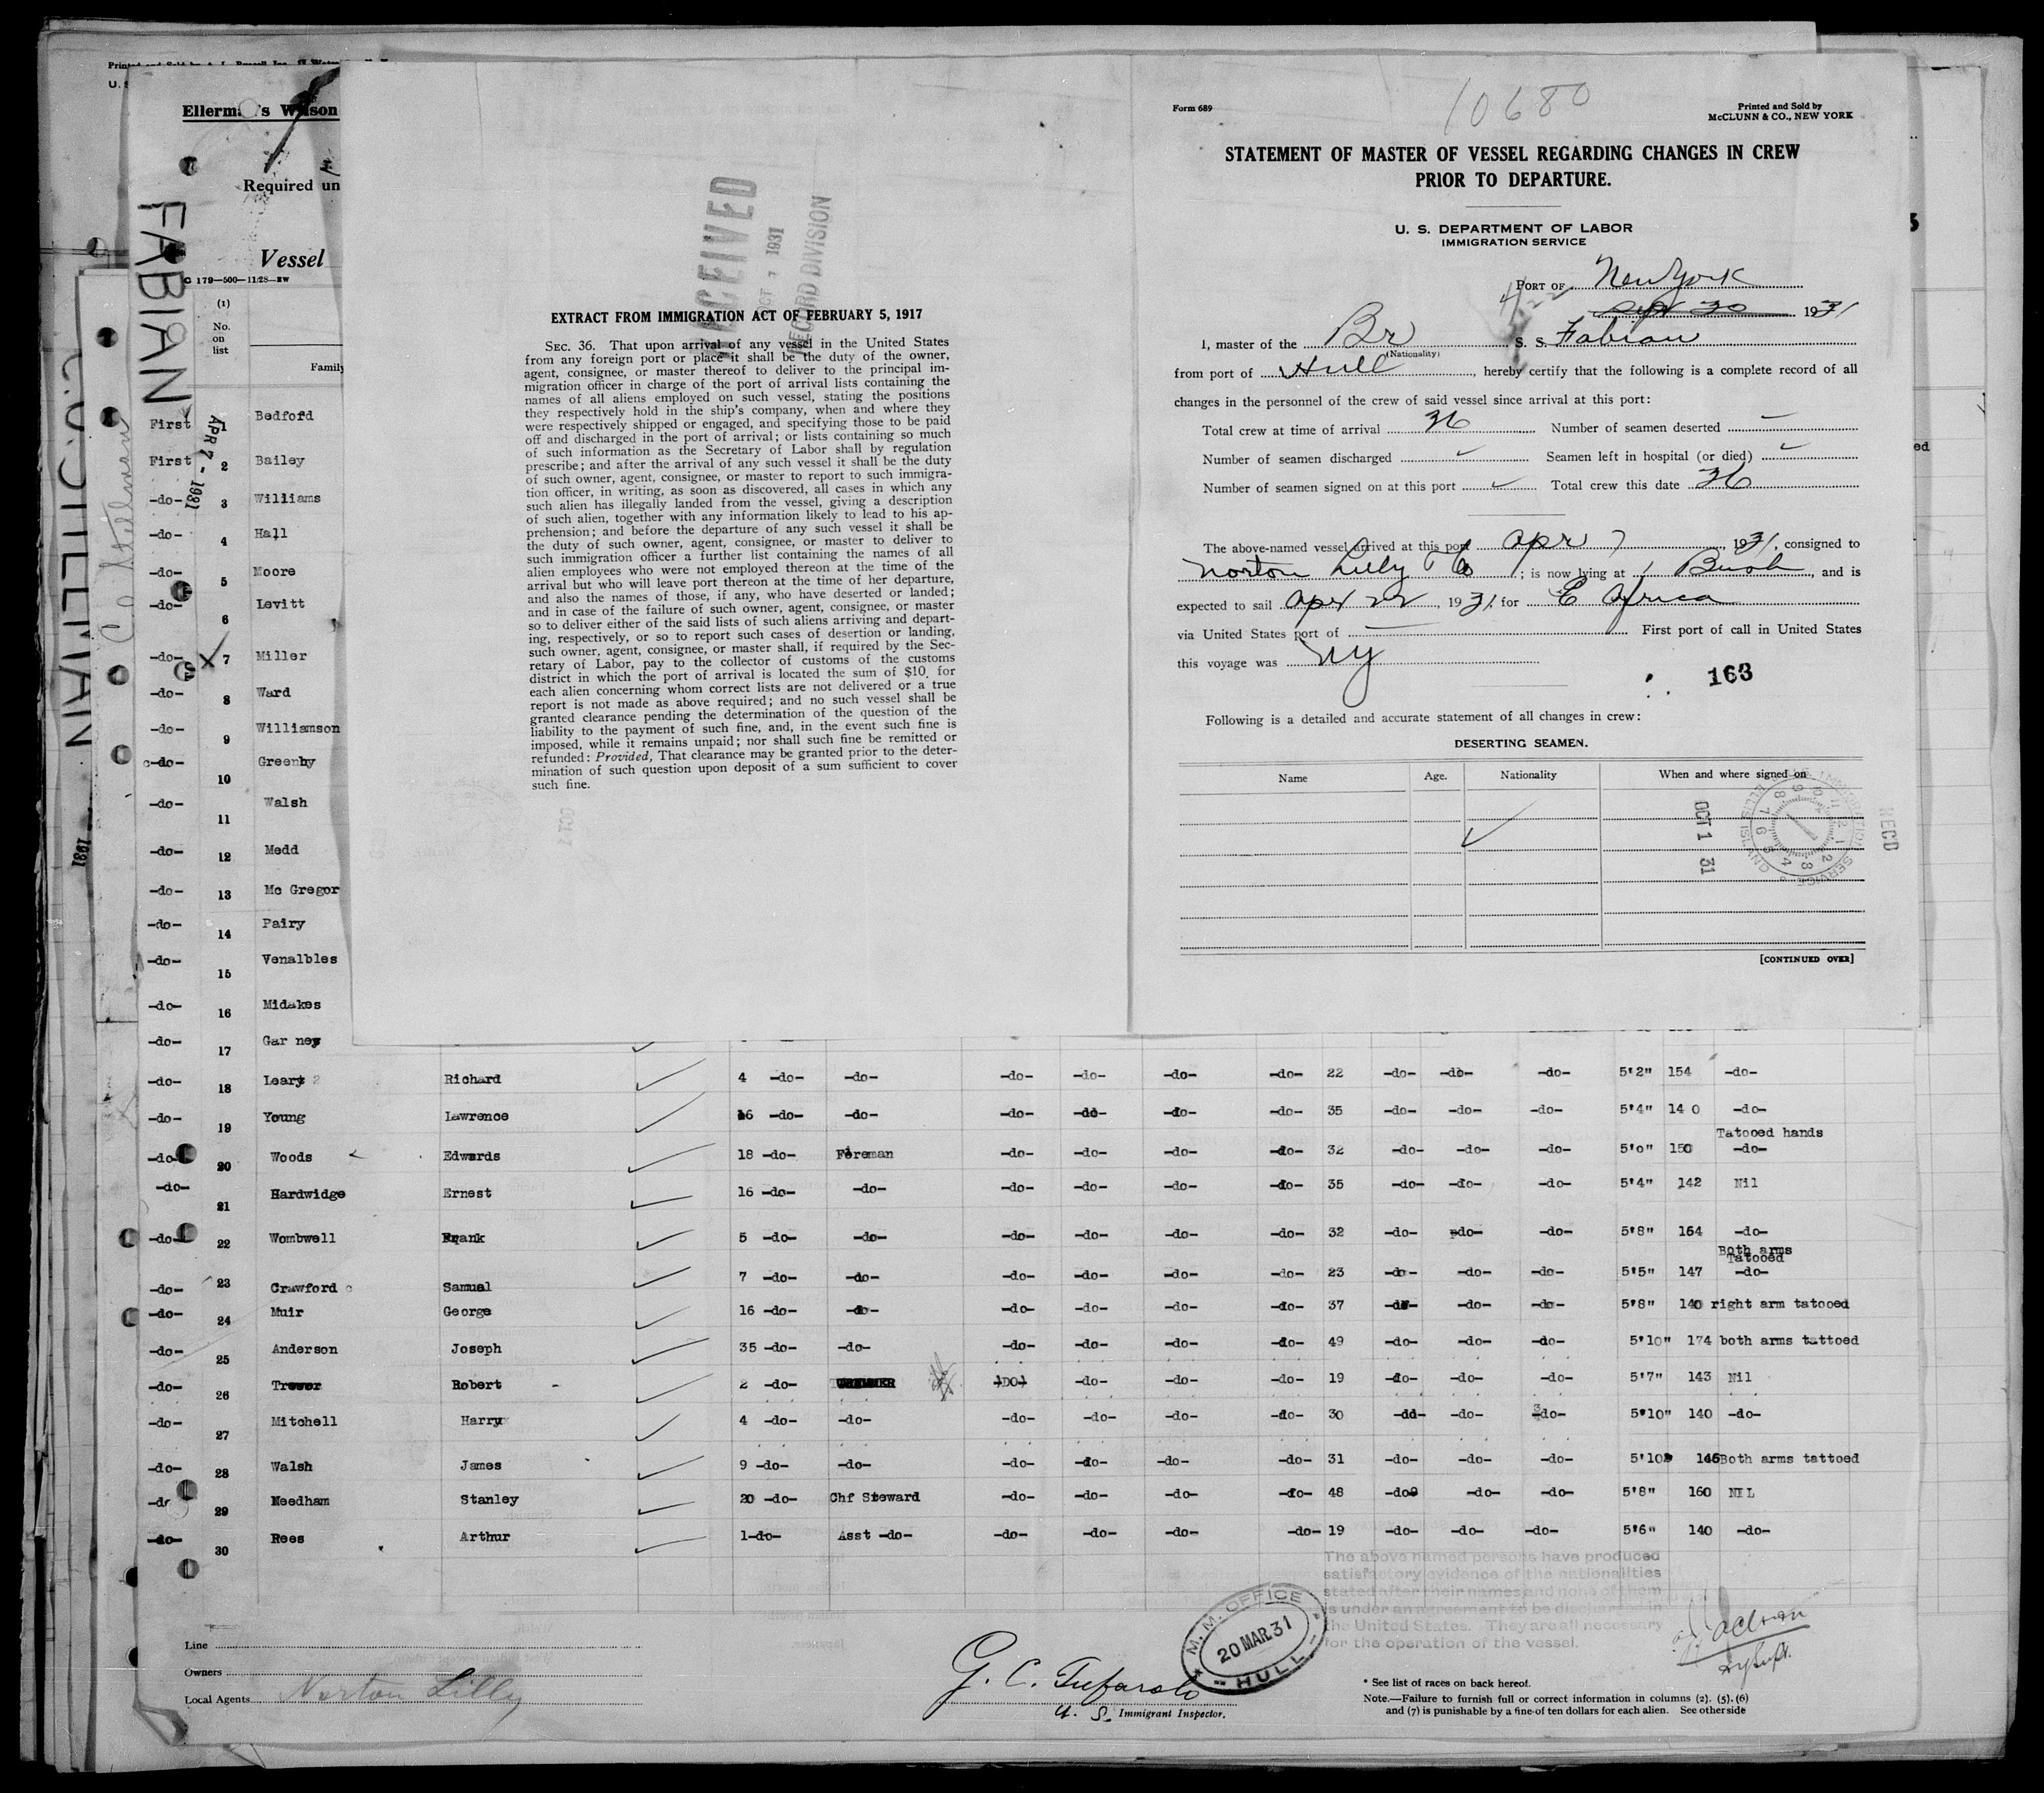 Ellerman's Wilson
Required un
Vessel
C 179—500—11/28—EW
FABIAN
APR 7 - 1931
C.O. STILLMAN
1931
(1)
No.
on
list
Family
First 1 Bedford
First 2 Bailey
-do- 3 Williams
-do- 4 Hall
-do- 5 Moore
-do- 6 Levitt
-do- 7 Miller
-do- 8 Ward
-do- 9 Williamson
-do- 10 Greenby
-do- 11 Walsh
-do- 12 Medd
-do- 13 Mc Gregor
-do- 14 Pairy
-do- 15 Venalbles
-do- 16 Midakes
-do- 17 Gar ney
RECEIVED
OCT 7 1931
RECORD DIVISION
EXTRACT FROM IMMIGRATION ACT OF FEBRUARY 5, 1917
SEC. 36. That upon arrival of any vessel in the United States
from any foreign port or place it shall be the duty of the owner,
agent, consignee, or master thereof to deliver to the principal im-
migration officer in charge of the port of arrival lists containing the
names of all aliens employed on such vessel, stating the positions
they respectively hold in the ship's company, when and where they
were respectively shipped or engaged, and specifying those to be paid
off and discharged in the port of arrival; or lists containing so much
of such information as the Secretary of Labor shall by regulation
prescribe; and after the arrival of any such vessel it shall be the duty
of such owner, agent, consignee, or master to report to such immigra-
tion officer, in writing, as soon as discovered, all cases in which any
such alien has illegally landed from the vessel, giving a description
of such alien, together with any information likely to lead to his ap-
prehension; and before the departure of any such vessel it shall be
the duty of such owner, agent, consignee, or master to deliver to
such immigration officer a further list containing the names of all
alien employees who were not employed thereon at the time of the
arrival but who will leave port thereon at the time of her departure,
and also the names of those, if any, who have deserted or landed;
and in case of the failure of such owner, agent, consignee, or master
so to deliver either of the said lists of such aliens arriving and depart-
ing, respectively, or so to report such cases of desertion or landing,
such owner, agent, consignee, or master shall, if required by the Sec-
retary of Labor, pay to the collector of customs of the customs
district in which the port of arrival is located the sum of $10 for
each alien concerning whom correct lists are not delivered or a true
report is not made as above required; and no such vessel shall be
granted clearance pending the determination of the question of the
liability to the payment of such fine, and, in the event such fine is
imposed, while it remains unpaid; nor shall such fine be remitted or
refunded: Provided, That clearance may be granted prior to the deter-
mination of such question upon deposit of a sum sufficient to cover
such fine.
Form 689
10680
Printed and Sold by
McCLUNN & CO., NEW YORK
STATEMENT OF MASTER OF VESSEL REGARDING CHANGES IN CREW
PRIOR TO DEPARTURE.
U. S. DEPARTMENT OF LABOR
IMMIGRATION SERVICE
PORT OF New York
4/22 Sept 30 1931
I, master of the Br S. S. Fabian
(Nationality)
from port of Hull, hereby certify that the following is a complete record of all
changes in the personnel of the crew of said vessel since arrival at this port:
Total crew at time of arrival 36 Number of seamen deserted —
Number of seamen discharged Seamen left in hospital (or died)
Number of seamen signed on at this port Total crew this date 36
The above-named vessel arrived at this port Apr 7 1931, consigned to
Norton Lilly & Co; is now lying at Bush, and is
expected to sail Apr 22, 1931 for E Africa
via United States port of — First port of call in United States
this voyage was NY
163
Following is a detailed and accurate statement of all changes in crew:
DESERTING SEAMEN.
Name Age. Nationality When and where signed on
RECD
OCT 1 31
U.S. IMMIGRATION SERVICE ELLIS ISLAND
[CONTINUED OVER]
-do- 18 Leary Richard 4 -do- -do- -do- -do- -do- -do- 22 -do- -do- -do- 5'2" 154 -do-
-do- 19 Young Lawrence 16 -do- -do- -do- -do- -do- -do- 35 -do- -do- -do- 5'4" 14 0 -do-
Tatooed hands
-do- 20 Woods Edwards 18 -do- Fireman -do- -do- -do- -do- 32 -do- -do- -do- 5'0" 150 -do-
-do- 21 Hardwidge Ernest 16 -do- -do- -do- -do- -do- -do- 35 -do- -do- -do- 5'4" 142 Nil
-do- 22 Wombwell Frank 5 -do- -do- -do- -do- -do- -do- 32 -do- -do- -do- 5'8" 164 -do-
Both arms
Tatooed
-do- 23 Crawford Samual 7 -do- -do- -do- -do- -do- -do- 23 -do- -do- -do- 5'5" 147 -do-
-do- 24 Muir George 16 -do- -do- -do- -do- -do- -do- 37 -do- -do- -do- 5'8" 140 right arm tatooed
-do- 25 Anderson Joseph 35 -do- -do- -do- -do- -do- -do- 49 -do- -do- -do- 5'10" 174 both arms tattoed
-do- 26 Robert 2 -do- -DO- -do- -do- -do- 19 -do- -do- -do- 5'7" 143 Nil
-do- 27 Mitchell Harry 4 -do- -do- -do- -do- -do- -do- 30 -do- -do- -do- 5'10" 140 -do-
-do- 28 Walsh James 9 -do- -do- -do- -do- -do- -do- 31 -do- -do- -do- 5'10" 146 Both arms tattoed
-do- 29 Needham Stanley 20 -do- Chf Steward -do- -do- -do- -do- 48 -do- -do- -do- 5'8" 160 NIL
-do- 30 Rees Arthur 1-do- Asst -do- -do- -do- -do- -do- 19 -do- -do- -do- 5'6" 140 -do-
The above named persons have produced
satisfactory evidence of the nationalities
stated after their names and none of them
is under an agreement to be discharged in
the United States. They are all necessary
for the operation of the vessel.
M. M. OFFICE
20 MAR.31
HULL
Line
Owners
Local Agents Norton Lilly
G. C. Tufarolo
U. S. Immigrant Inspector.
* See list of races on back hereof.
Note.—Failure to furnish full or correct information in columns (2), (5), (6)
and (7) is punishable by a fine of ten dollars for each alien. See other side